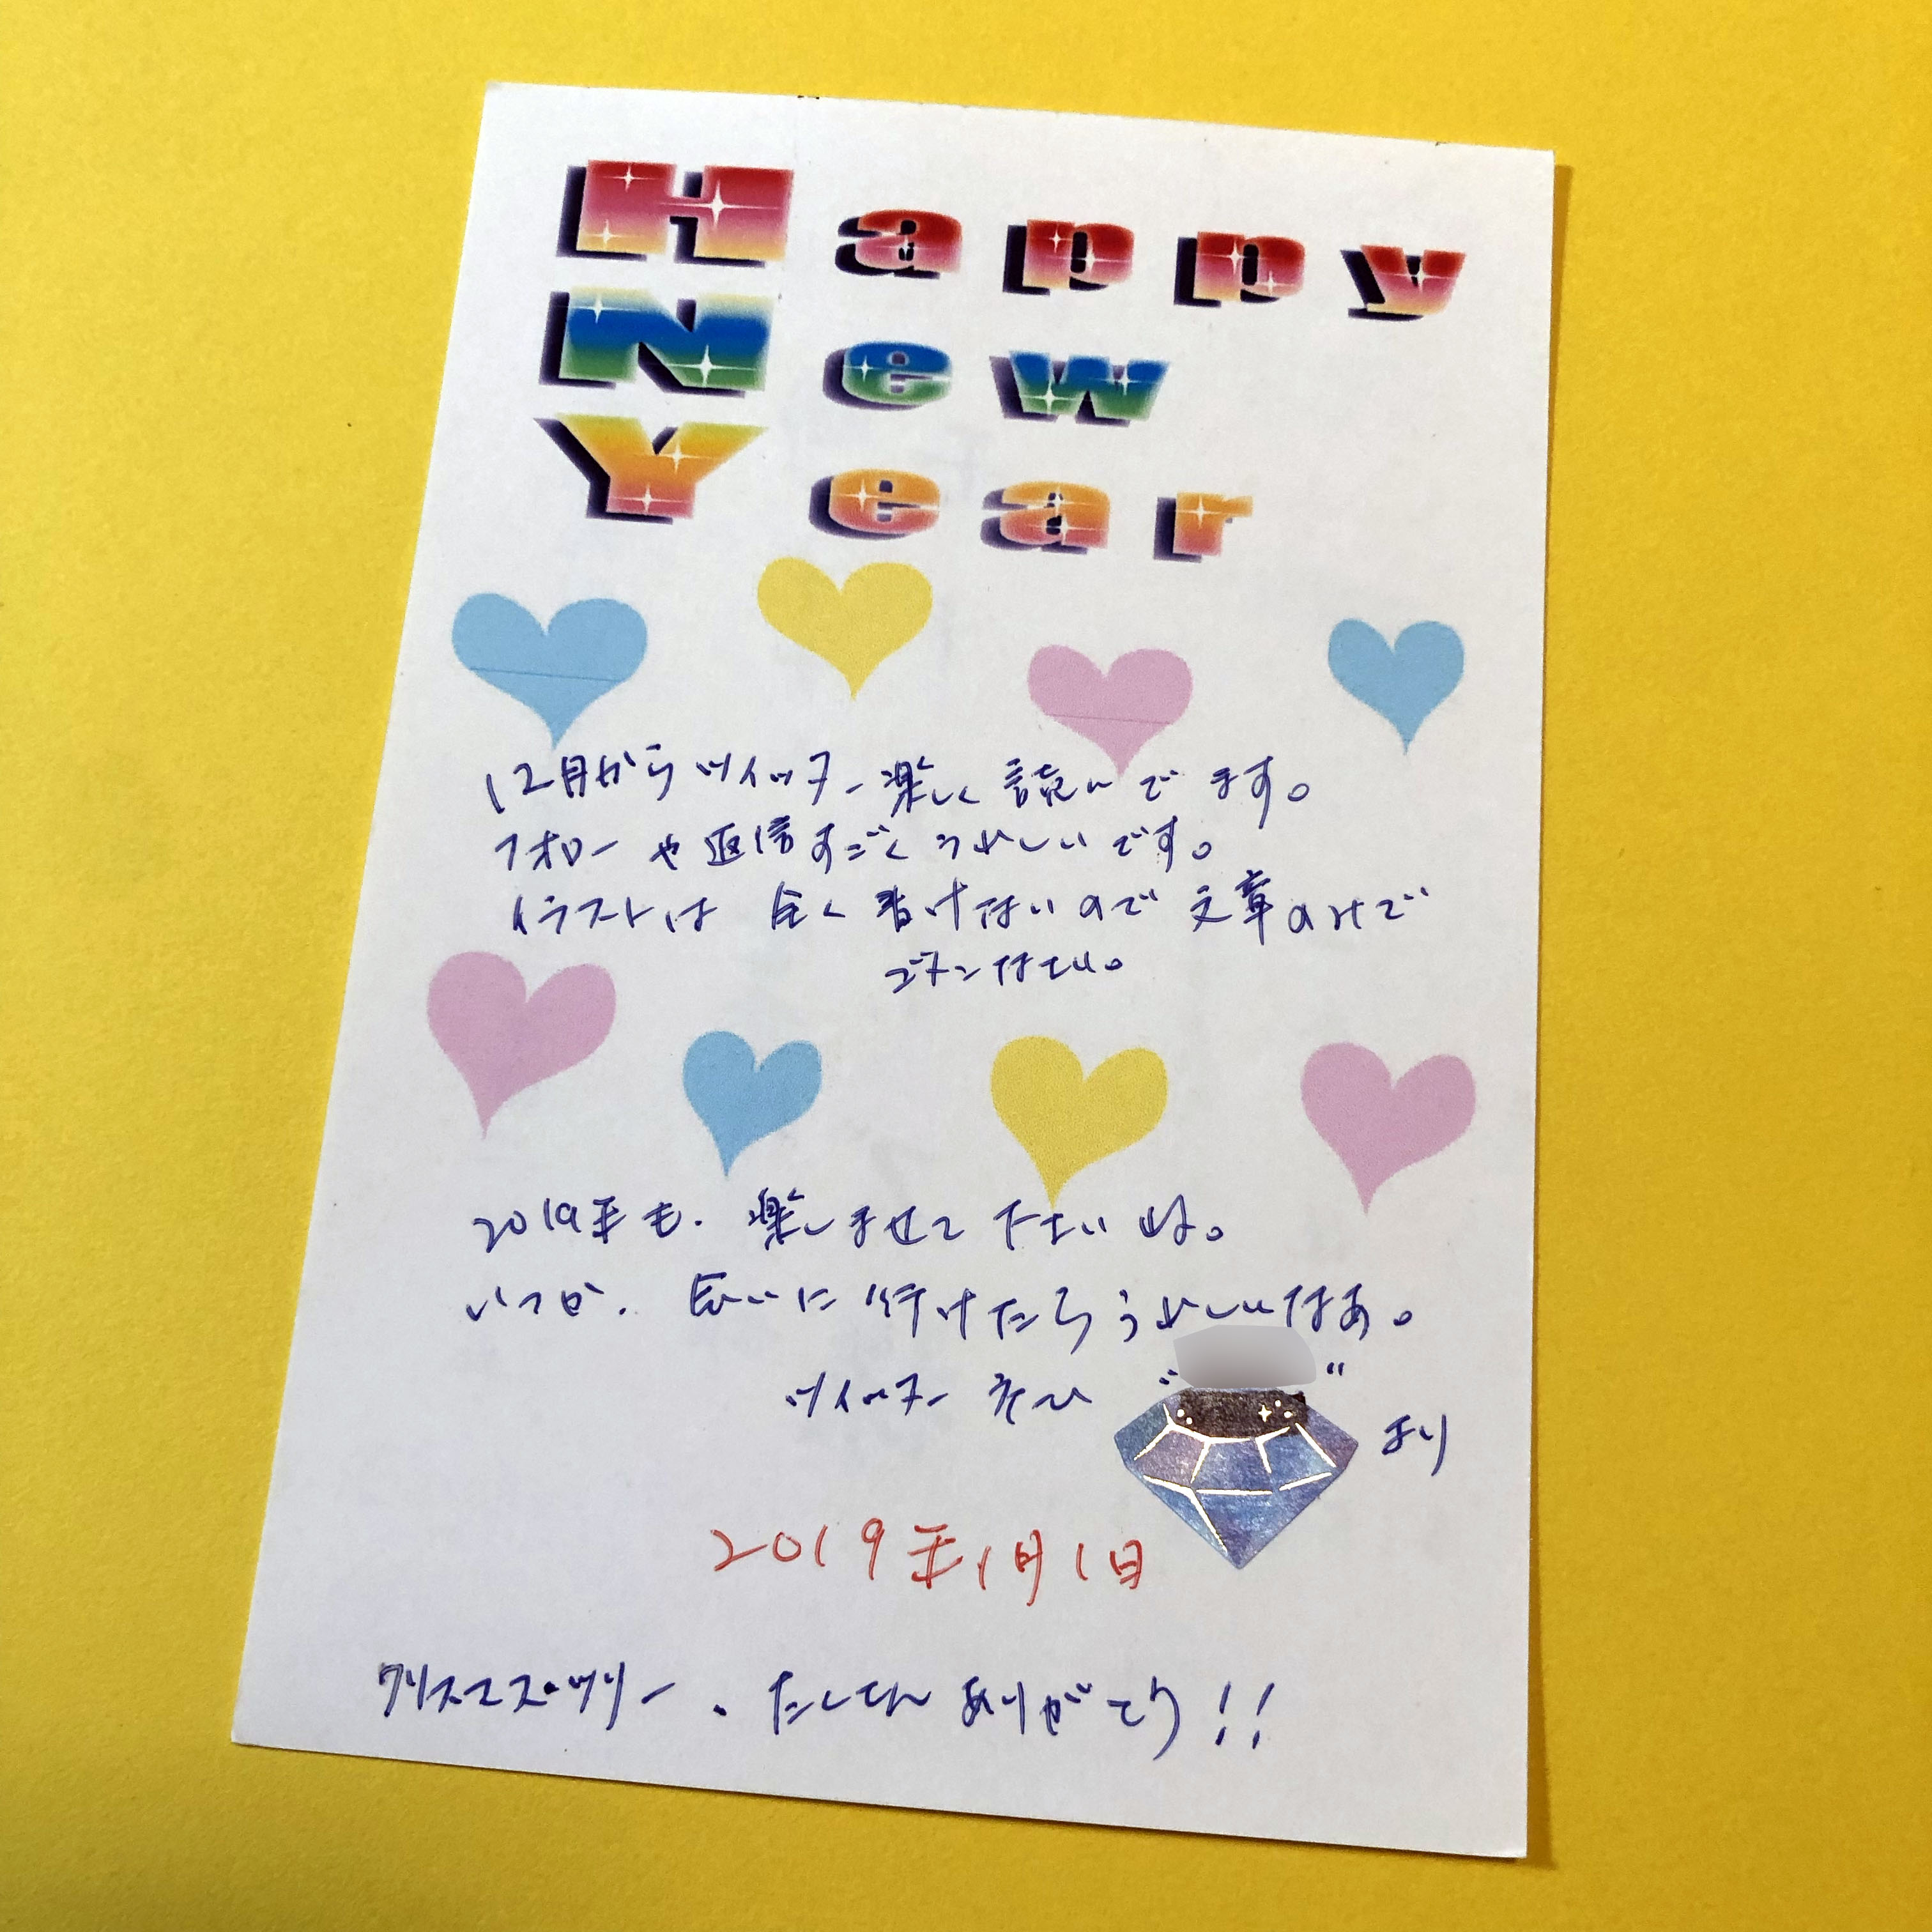 Happy
New
Year
12月からツイッター楽しく読んでます。
フォローや返信すごくうれしいです。
イラストは全く書けないので文章のみで
ゴメンなさい。
2019年も、楽しませて下さいね。
いつか、会いに行けたらうれしいなあ。
ツイッター
“ ”
より
2019年1月1日
クリスマス・ツリー、たくさんありがとう!!